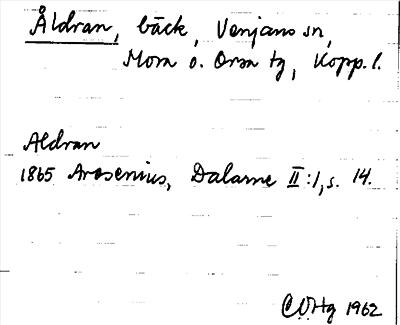 Åldran, bäck, Venjans sn,
Mora o. Orsa tg, Kopp. l.
Aldran
1865 Arosenius, Dalarne II:1, s. 14.
COHg 1962